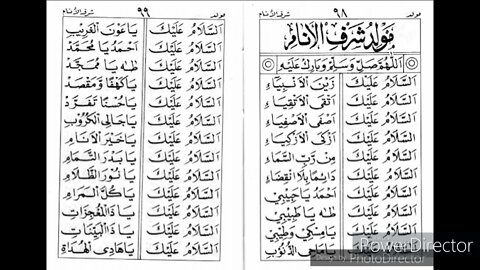 مولد ٩٨ شرف الأنام
مَوْلِدُ شَرَفِ الْأَنَامِ
اَللّٰهُمَّ صَلِّ وَسَلِّمْ وَبَارِكْ عَلَيْهِ
اَلسَّلَامُ عَلَيْكَ زَيْنَ الْأَنْبِيَاءِ
اَلسَّلَامُ عَلَيْكَ أَتْقَى الْأَتْقِيَاءِ
اَلسَّلَامُ عَلَيْكَ أَصْفَى الْأَصْفِيَاءِ
اَلسَّلَامُ عَلَيْكَ أَزْكَى الْأَزْكِيَاءِ
اَلسَّلَامُ عَلَيْكَ مِنْ رَبِّ السَّمَاءِ
اَلسَّلَامُ عَلَيْكَ دَائِمًا بِلَا انْقِضَاءِ
اَلسَّلَامُ عَلَيْكَ أَحْمَدُ يَا حَبِيْبِيْ
اَلسَّلَامُ عَلَيْكَ طٰهٰ يَا طَبِيْبِيْ
اَلسَّلَامُ عَلَيْكَ يَا مِسْكِيْ وَطِيْبِيْ
اَلسَّلَامُ عَلَيْكَ يَا مَاحِي الذُّنُوْبِ
مولد ٩٩ شرف الأنام
اَلسَّلَامُ عَلَيْكَ يَا عَوْنَ الْغَرِيْبِ
اَلسَّلَامُ عَلَيْكَ أَحْمَدُ يَا مُحَمَّدُ
اَلسَّلَامُ عَلَيْكَ طٰهٰ يَا مُمَجَّدُ
اَلسَّلَامُ عَلَيْكَ يَا كَهْفًا وَمَقْصَدْ
اَلسَّلَامُ عَلَيْكَ يَا حُسْنًا تَفَرَّدْ
اَلسَّلَامُ عَلَيْكَ يَا جَالِي الْكُرُوْبِ
اَلسَّلَامُ عَلَيْكَ يَا خَيْرَ الْأَنَامِ
اَلسَّلَامُ عَلَيْكَ يَا بَدْرَ التَّمَامِ
اَلسَّلَامُ عَلَيْكَ يَا نُوْرَ الظَّلَامِ
اَلسَّلَامُ عَلَيْكَ يَا كُلَّ الْمَرَامِ
اَلسَّلَامُ عَلَيْكَ يَا ذَا الْمُعْجِزَاتِ
اَلسَّلَامُ عَلَيْكَ يَا ذَا الْبَيِّنَاتِ
اَلسَّلَامُ عَلَيْكَ يَا هَادِي الْهُدَاةِ
PowerDirector
Designed by PhotoDirector